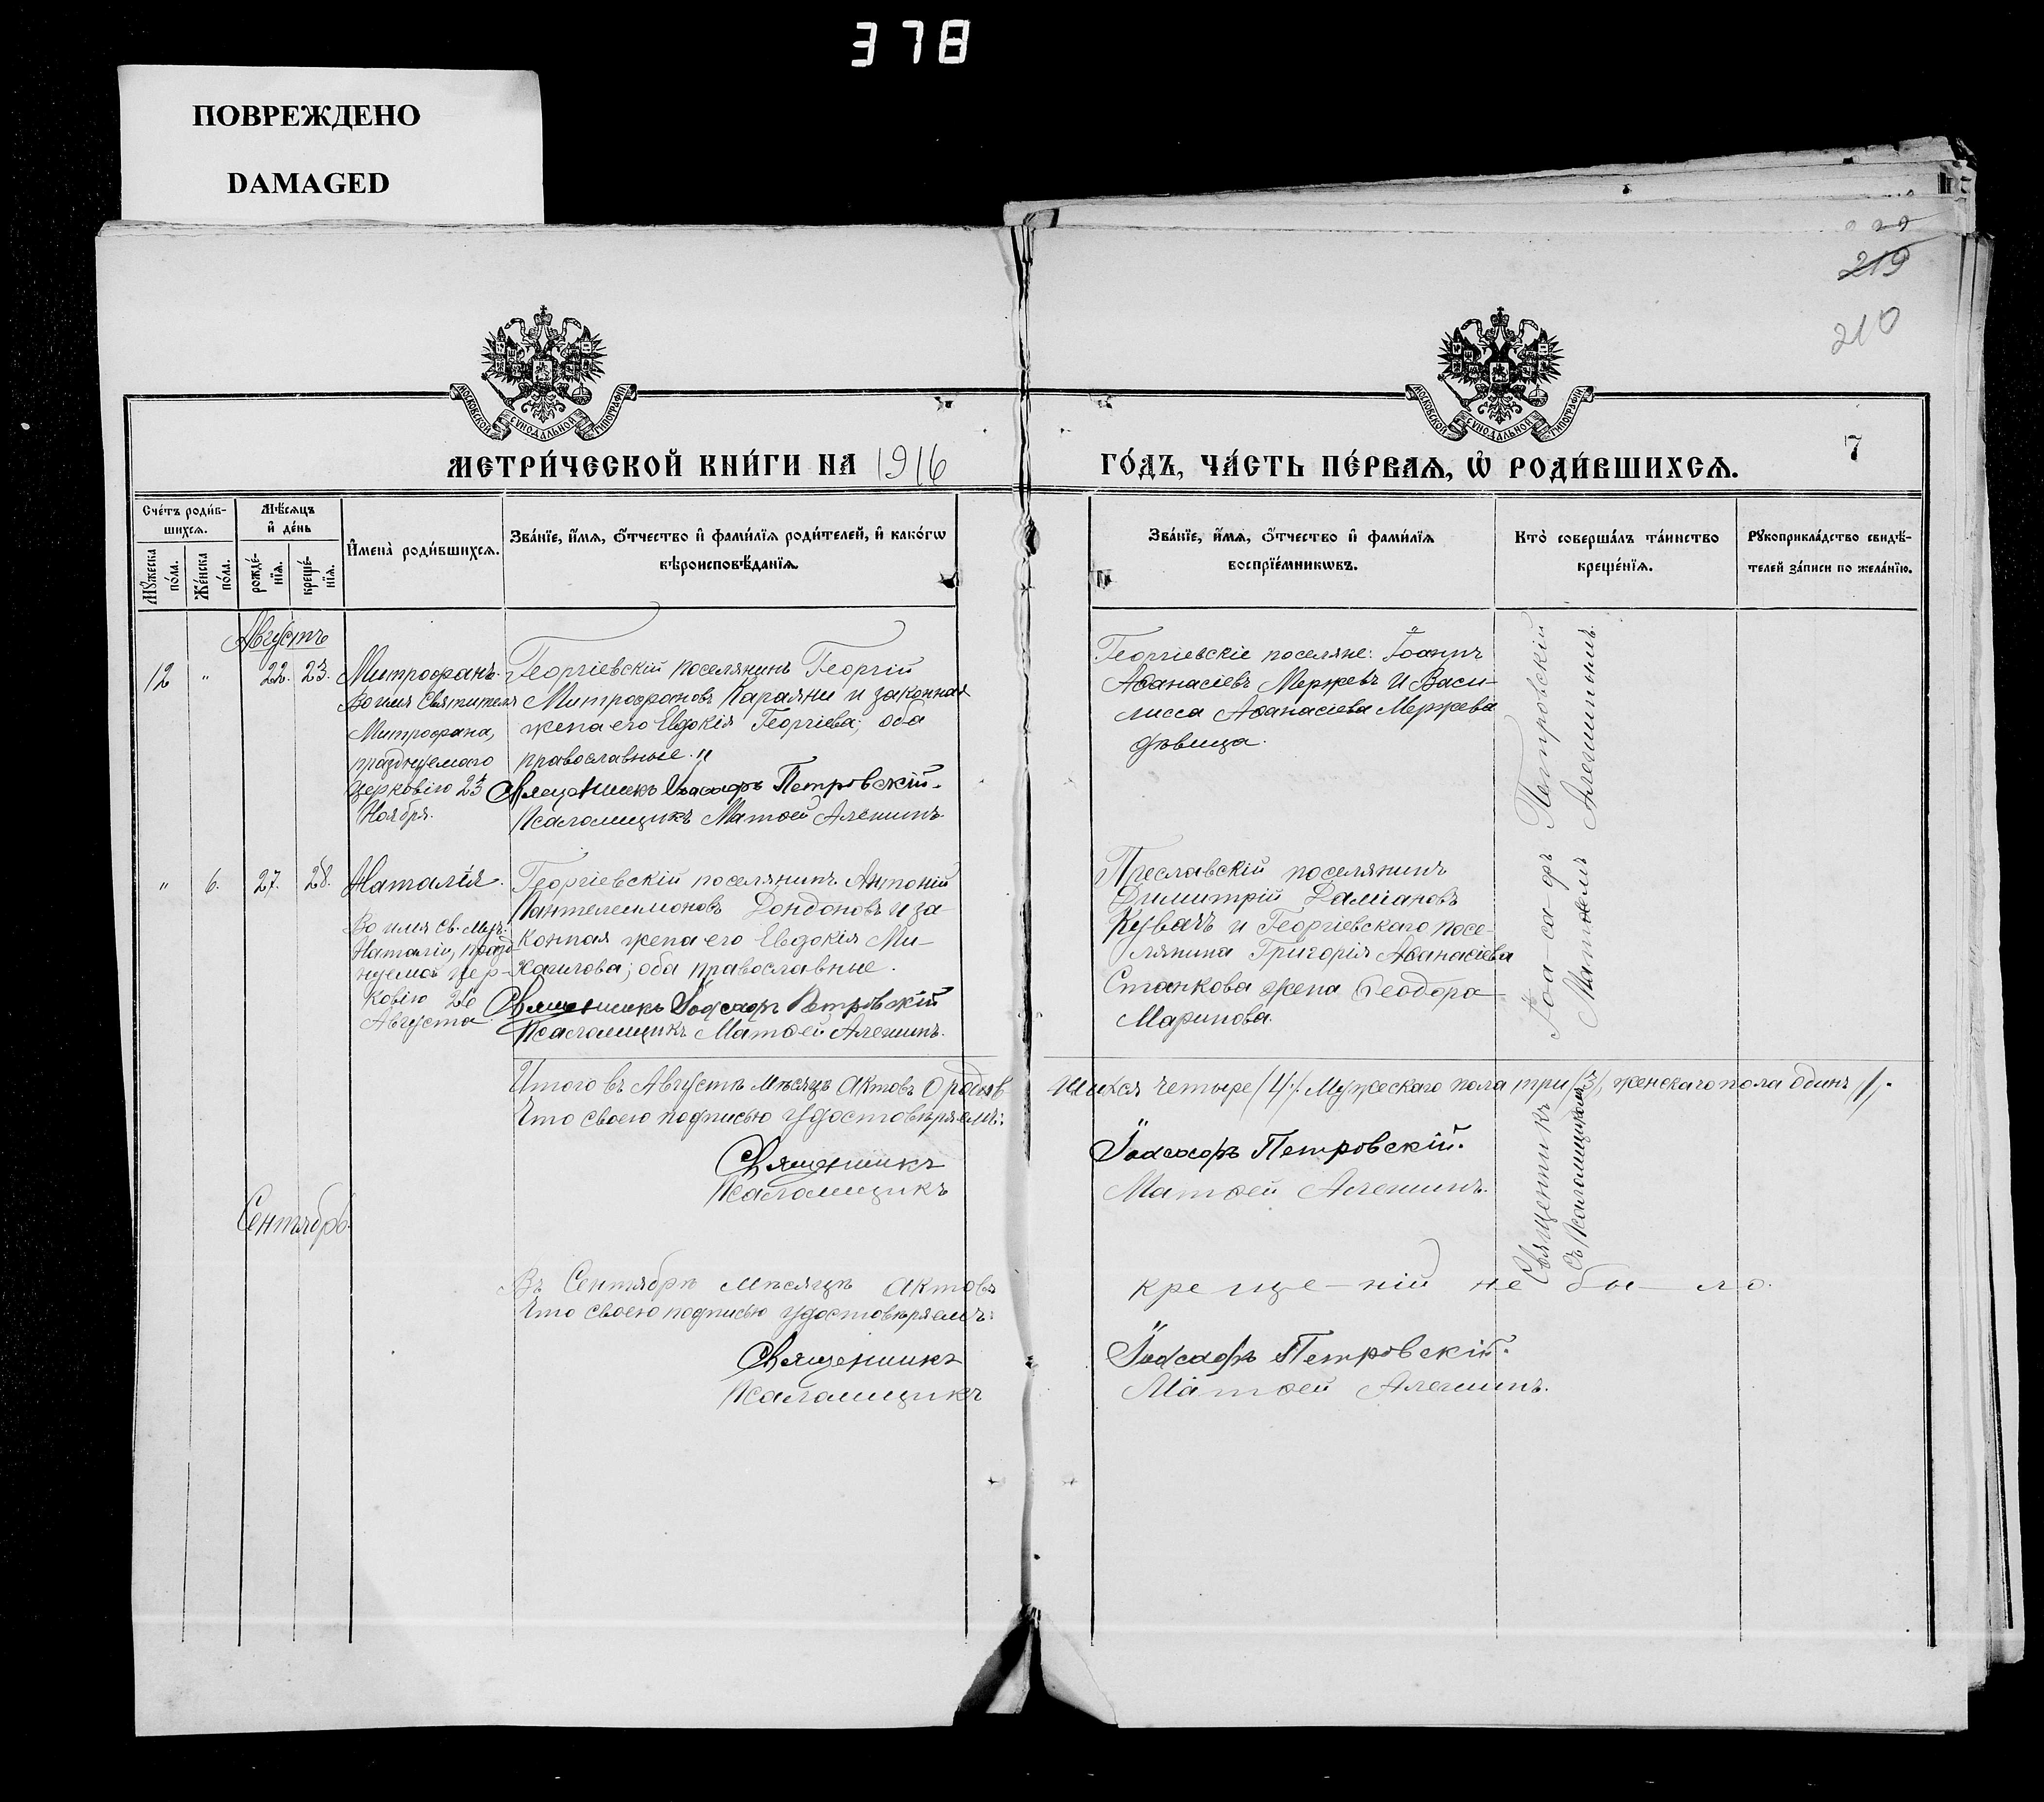 378
ПОВРЕЖДЕНО
DAMAGED
219
210
МОСКОВСКОЙ СѴНОДАЛЬНОЙ ТИПОГРАФІИ
МОСКОВСКОЙ СѴНОДАЛЬНОЙ ТИПОГРАФІИ
МЕТРИ́ЧЕСКОЙ КНИ́ГИ НА 1916
ГО́ДЪ, ЧА́СТЬ ПЕ́РВАѦ, Ѡ҆ РОДИ́ВШИХСѦ.
7
Сче́тъ роди́в-
шихсѧ.
Мꙋ́жеска
по́ла.
Же́нска
по́ла.
Мѣ́сѧцъ
и҆ де́нь
рожде́-
нїѧ.
креще́-
нїѧ.
И҆мена̀ роди́вшихсѧ.
Зва́нїе, и҆́мѧ, ѻ҆́тчество и҆ фами́лїѧ роди́телей, и҆ како́гѡ
вѣроисповѣ́данїѧ.
Зва́нїе, и҆́мѧ, ѻ҆́тчество и҆ фами́лїѧ
воспрїе́мникѡвъ.
Кто̀ соверша́лъ та́инство
креще́нїѧ.
Рꙋкоприкла́дство свидѣ́-
телей за́писи по жела́нїю.
Августъ
12
"
22.
23.
Митрофанъ.
Во имя Святителя
Митрофана,
празднуемаго
церковію 23
Ноября.
Георгіевскій поселянинъ Георгій
Митрофановъ Караяни и законная
жена его Евдокія Георгіева; оба
православные."
Священникъ Іоасафъ Петровскій.
Псаломщикъ Матѳей Алешинъ.
Георгіевскіе поселяне: Іоаннъ
Аѳанасіевъ Мержевъ и Васи-
лисса Аѳанасіева Мержева
дѣвица.
"
6.
27.
28.
Наталія.
Во имя св. Муч.
Наталіи, празд-
нуемой цер-
ковію 26
Августа.
Георгіевскій поселянинъ Антоній
Пантелеимоновъ Дондоновъ и за-
конная жена его Евдокія Ми-
хаилова; оба православные.
Священникъ Іоасафъ Петровскій
Псаломщикъ Матѳей Алешинъ.
Преславскій поселянинъ
Димитрій Даміановъ
Кувачъ и Георгіевскаго посе-
лянина Григорія Аѳанасіева
Станкова жена Ѳеодора
Маринова.
Священникъ Іоа-са-фъ Петровскій
съ Псаломщикомъ Матѳемъ Алешинымъ.
Итого въ Августѣ мѣсяцѣ актовъ о родив-
шихся четыре /4/. Мужескаго пола три /3/, женскаго пола одинъ /1/.
Что своею подписью удостовѣряемъ:
Священникъ Іоасафъ Петровскій.
Псаломщикъ Матѳей Алешинъ.
Сентябрь.
Въ Сентябрѣ мѣсяцѣ актовъ креще-ній не бы-ло.
Что своею подписью удостовѣряемъ:
Священникъ Іоасафъ Петровскій.
Псаломщикъ Матѳей Алешинъ.